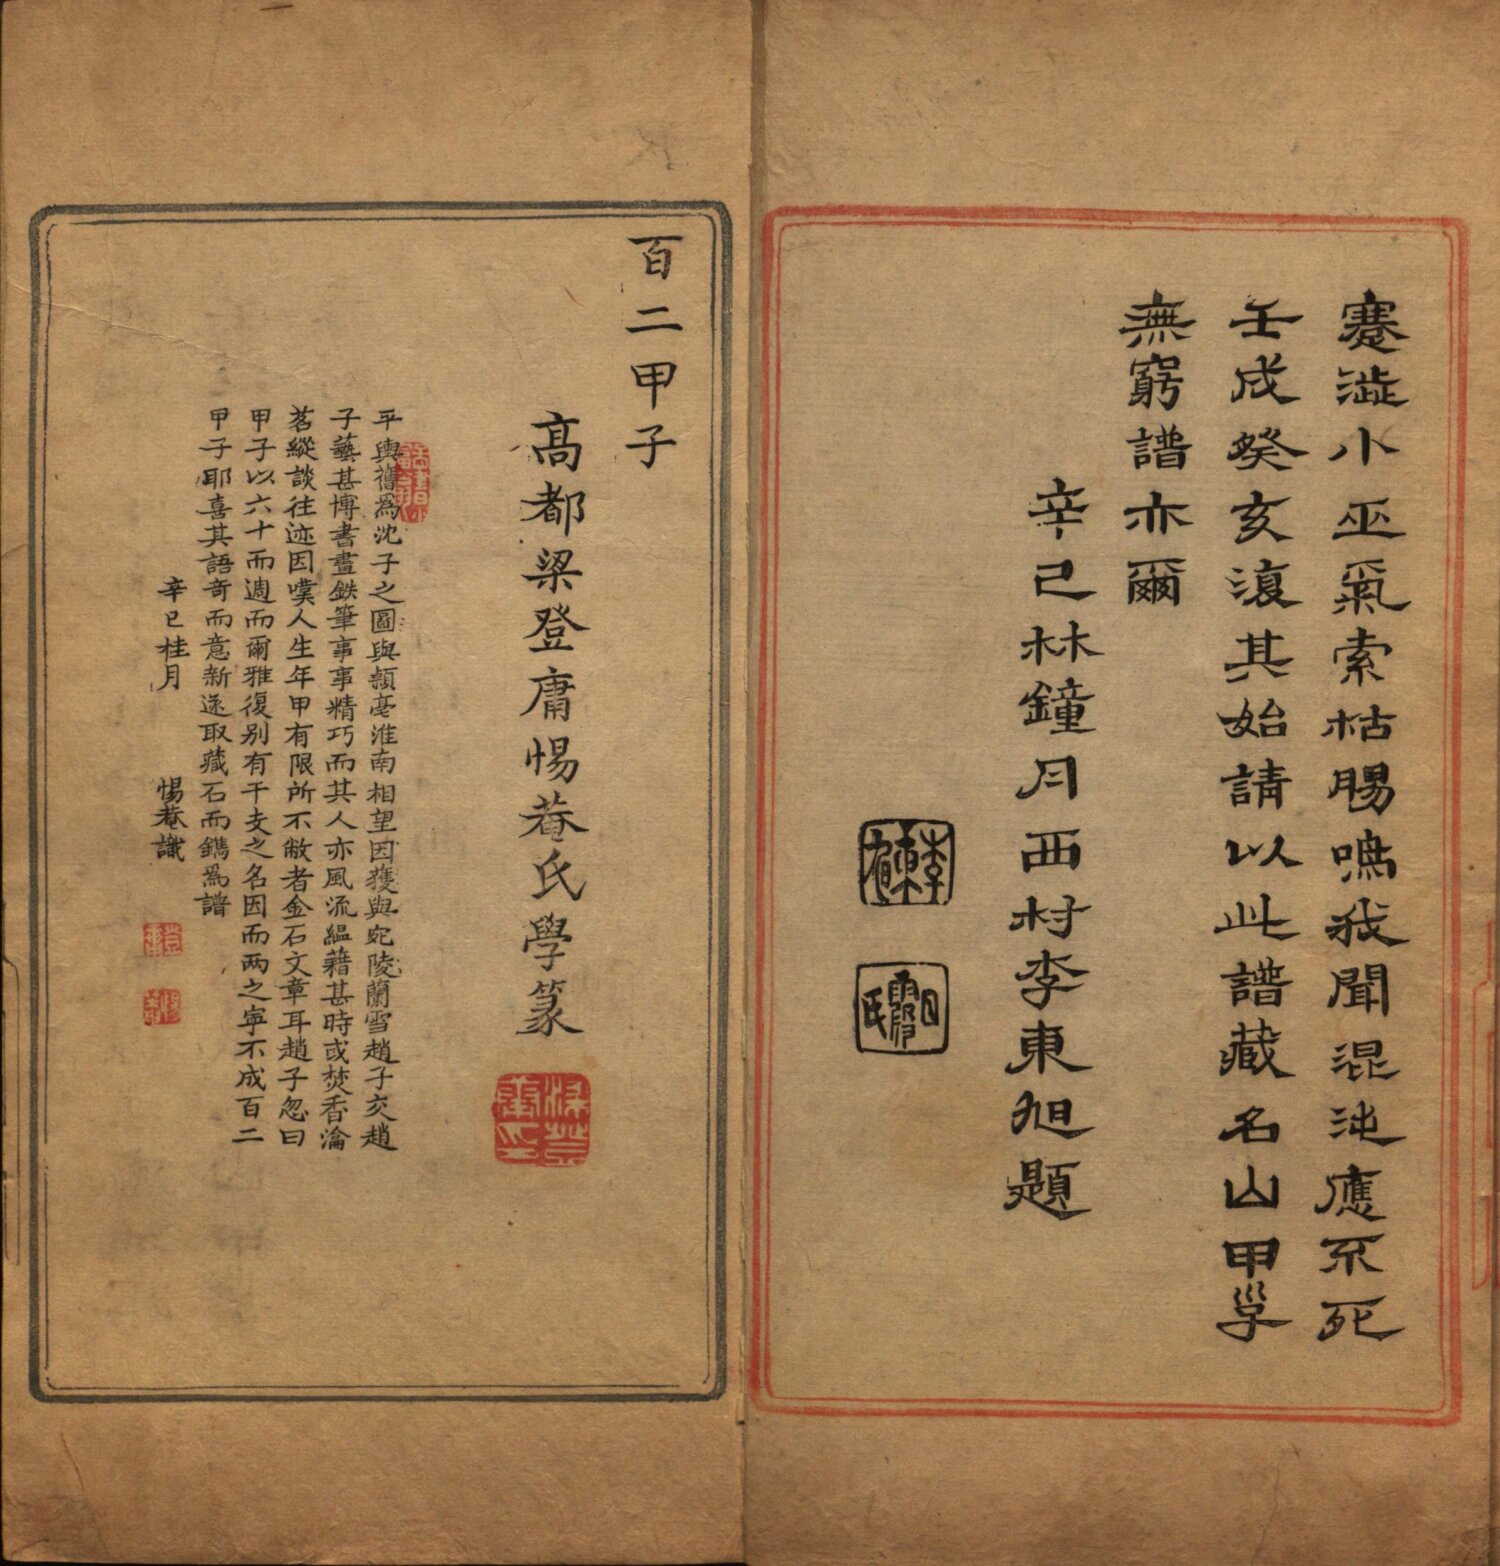 蹇澁小巫氣索枯腸鳴我聞混沌應不死
壬戌癸亥復其始請以此譜藏名山甲孚
無窮譜亦爾
辛已林鐘月西村李東旭題
百二甲子
高都梁登庸惕菴氏學篆
平輿舊為沈子之國與潁亳淮南相望因獲與宛陵蘭雪趙子交趙
子藝甚博書畫鉄筆事事精巧而其人亦風流緼藉甚時或焚香瀹
茗縱談往迹因嘆人生年甲有限所不敝者金石文章耳趙子忽曰
甲子以六十而週而爾雅復別有干支之名因而两之寧不成百二
甲子耶喜其語竒而意新遂取藏石而鐫為譜
辛巳桂月 惕菴識
梁登庸印